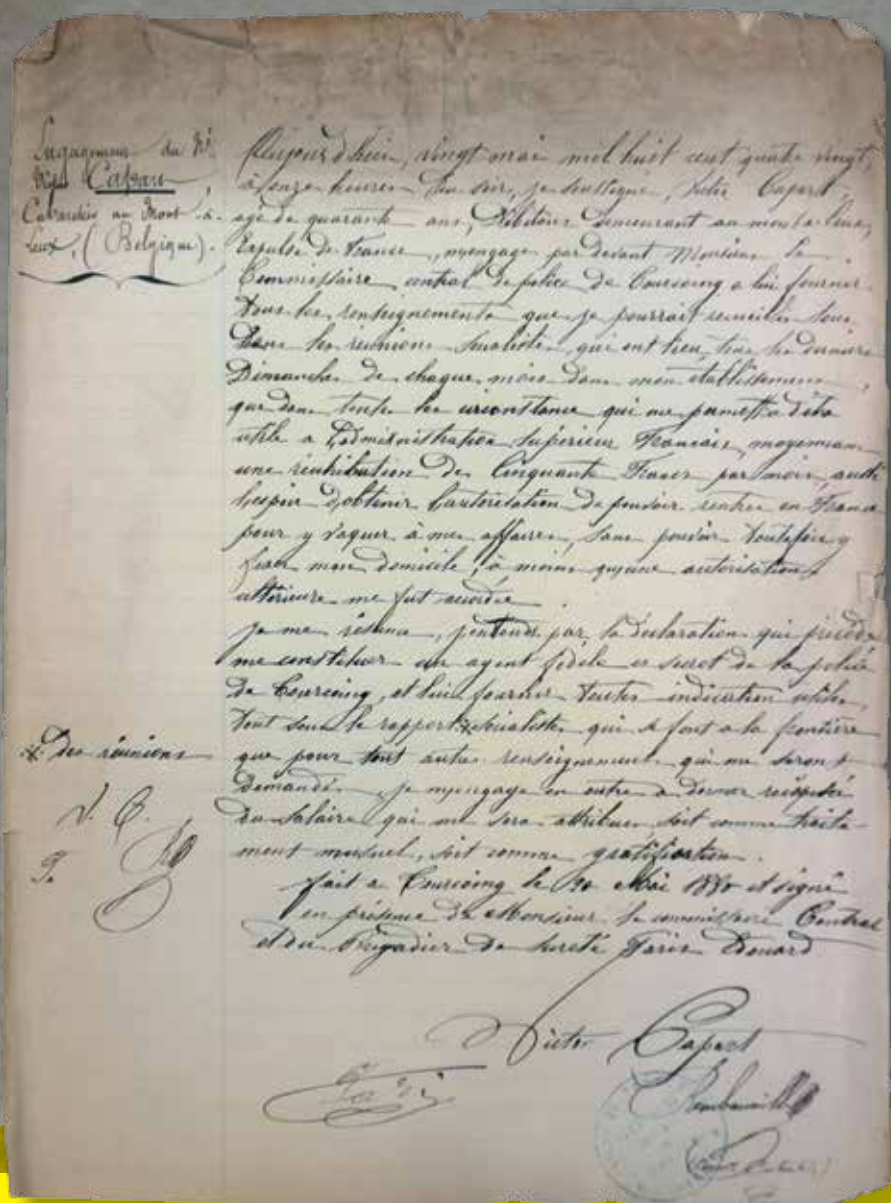 Engagement du Né
Capart,
Cabaretier au Mont-à-
Leux, (Belgique).
Aujourd'hui, vingt mai mil huit cent quatre vingt,
à onze heures du soir, je soussigné, Victor Capart
agé de quarante ans, Débitant demeurant au mont à Leux,
Expulsé de France, m'engage par devant Monsieur le
Commissaire central de police de Tourcoing a lui fournir
tous les renseignements que je pourrait recueillir tous
dans les réunions socialistes, qui ont lieu, tous les derniers
Dimanches de chaque mois dans mon établissement,
que dans toutes les circonstance qui me permettra d'être
utile a L'administration Supérieur Francaise, moyennant
une rétribution de Cinquante Francs par mois, aussi
l'espoir d'obtenir l'autorisation de pouvoir rentrer en France
pour y vaquer à mes affaires, sans pouvoir toutefois y
fixer mon domicile, à moins qu'une autorisation
ultérieure me fut accordée
je me résume, j'entends par la déclaration qui précède
me constituer un agent fidèle et secret de la police
de Tourcoing, et lui fournir toutes indication utiles,
tant sous le rapport x socialistes qui se font a la frontière
x des réunions
que pour tout autre renseignements qui me seront
demandés, je m'engage en outre a donner récépissé
du salaire qui me sera attribuer, soit comme traite-
ment mensuel, soit comme gratification.
V. C.
fait a Tourcoing le 20 Mai 1880 et signé
en présence de Monsieur le commissaire Central
et du Brigadier de sureté Paris Edouard
Victor Capart